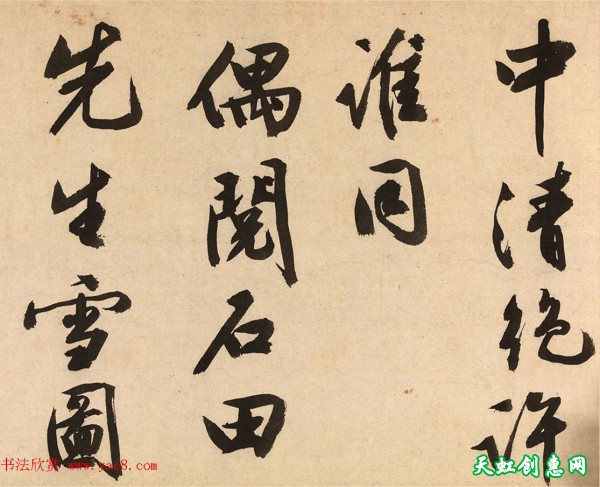 中清绝许
谁同
偶閱石田
先生雪圖
书法欣赏 www.yac8.com
天虹创惠网